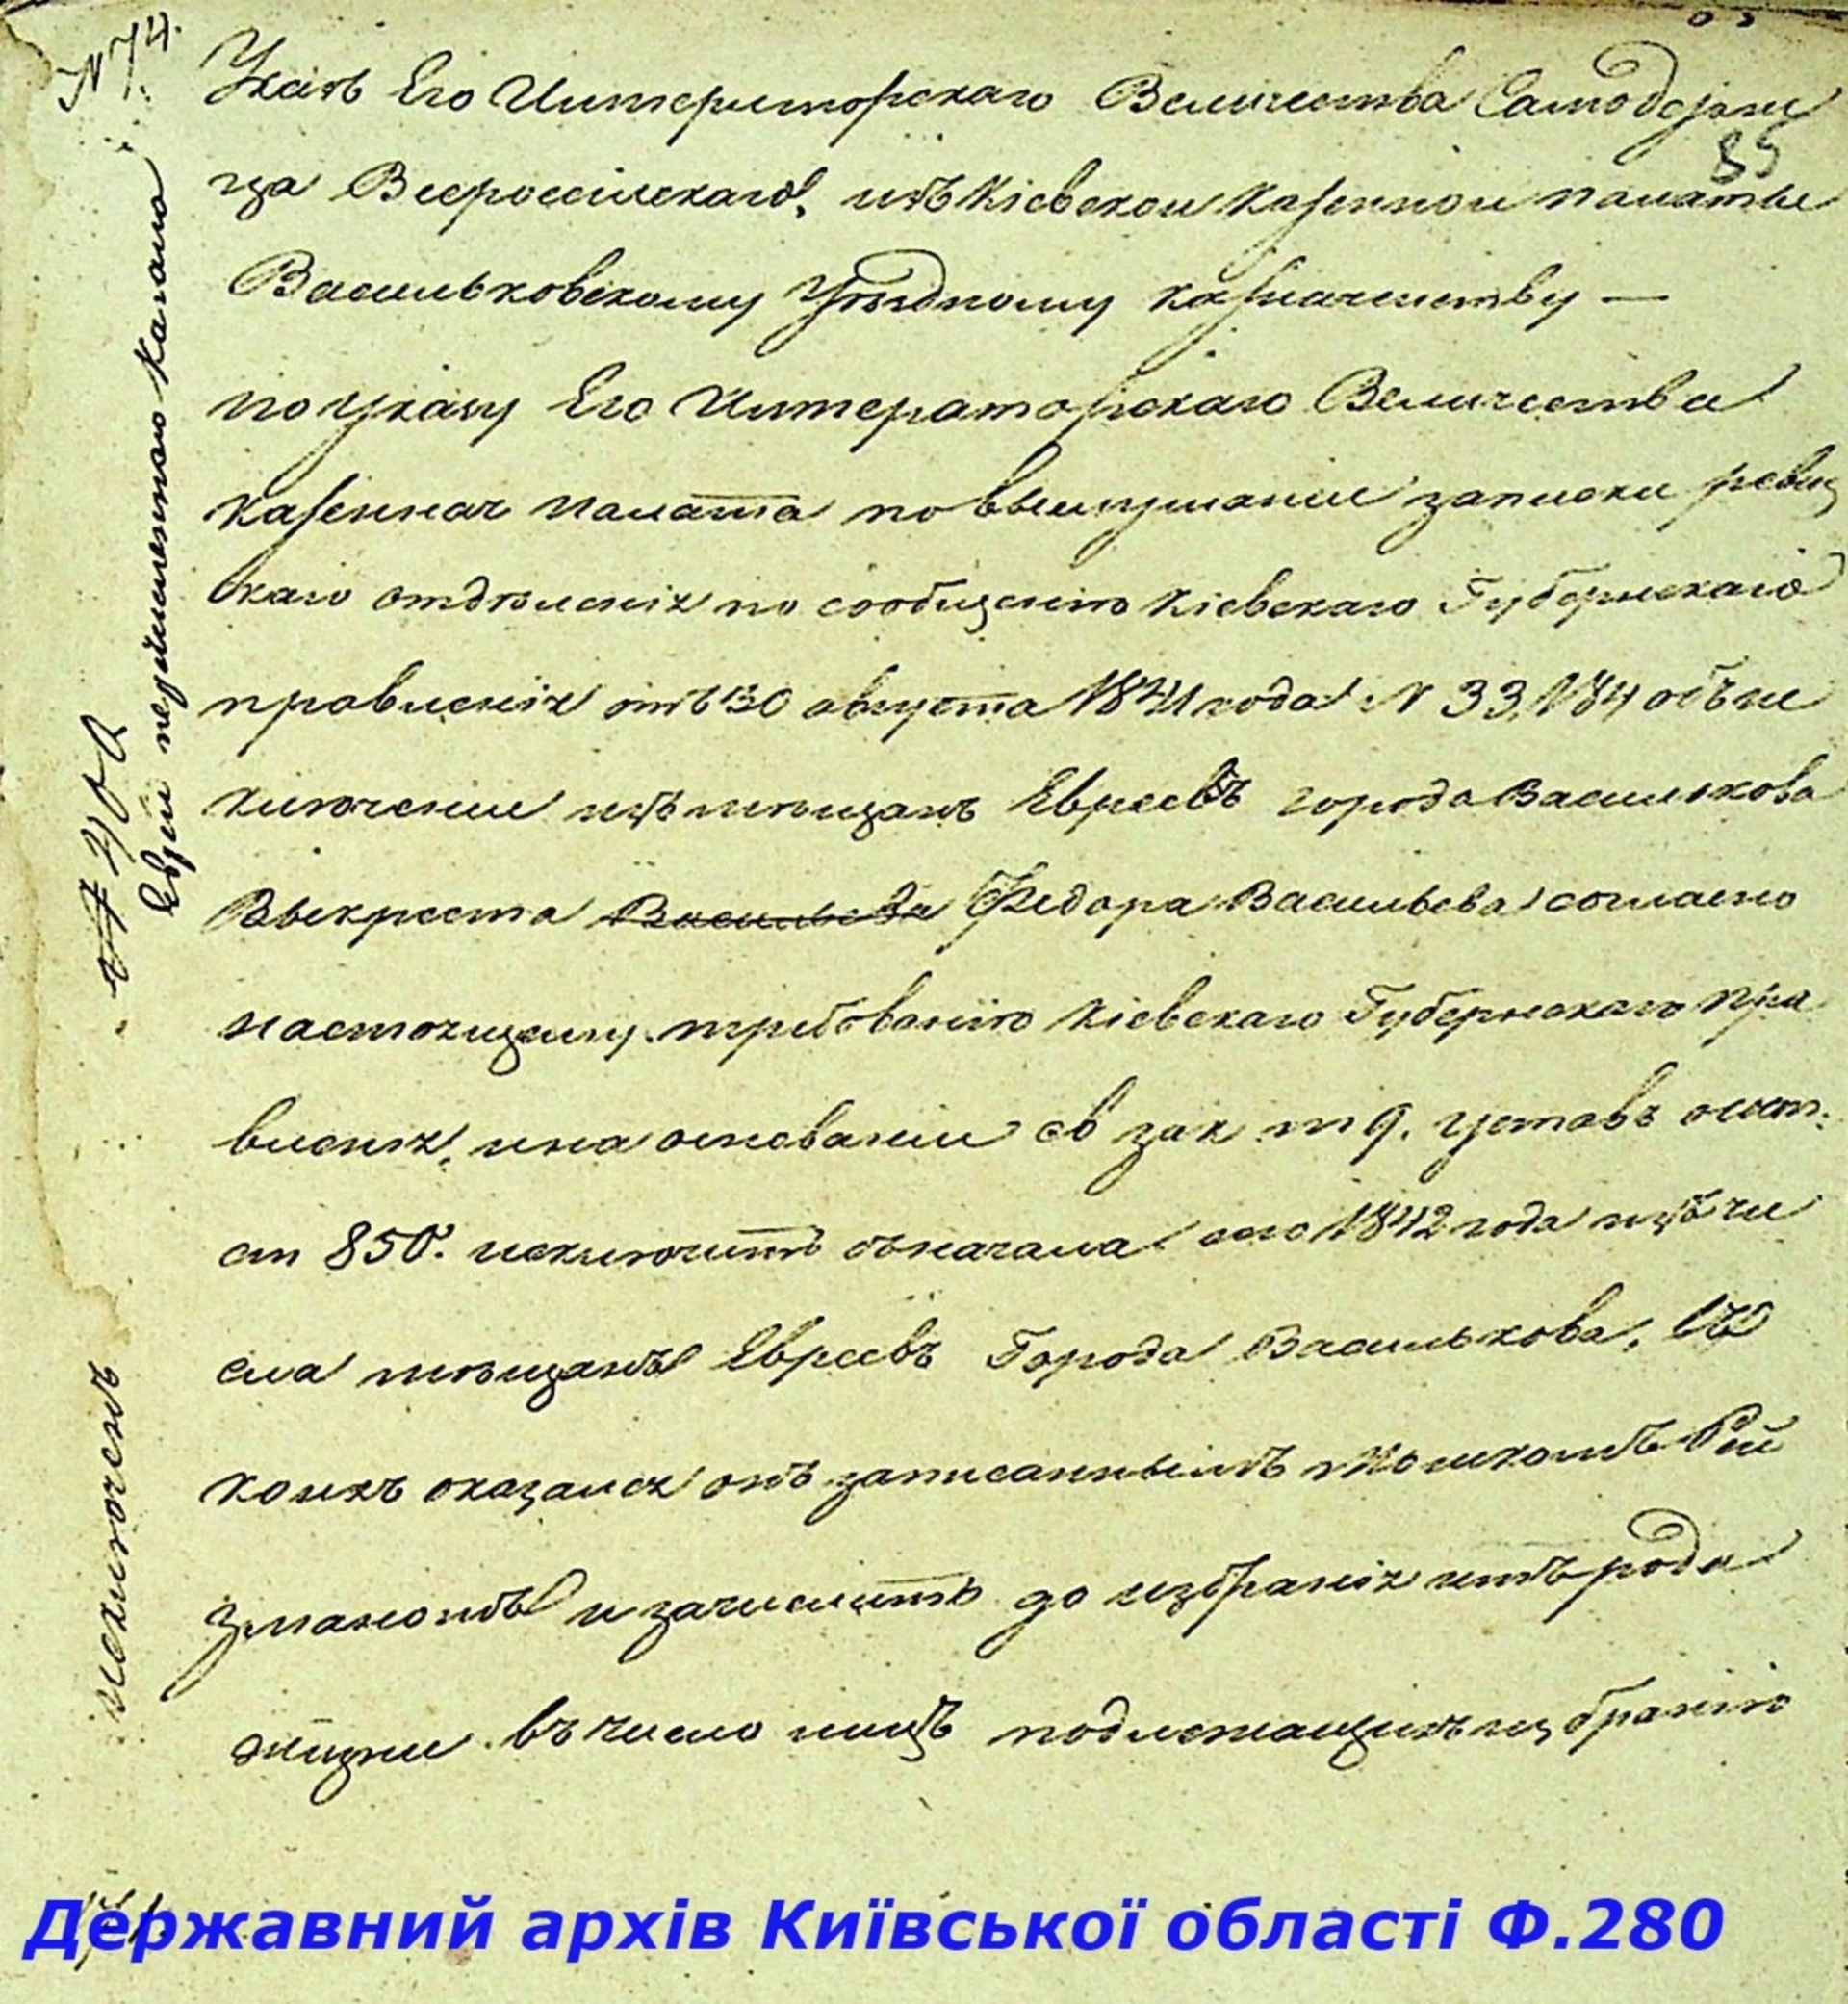 № 74.
Указъ Его Императорскаго Величества Самодержи
85
ца Всероссійскаго, изъ Кіевской Казенной палаты
Васильковскому Уѣздному казначейству —
по указу Его Императорскаго Величества
казенная палата по выслушаніи записки ревиз
скаго отдѣленія по сообщенію Кіевскаго Губернскаго
правленія отъ 30 августа 1841 года № 33,184 объ ис
ключеніи изъ мѣщанъ Евреевъ города Василькова
Выкреста Васильева Федора Васильева согласно
настоящему требованію Кіевскаго Губернскаго пра
вленія, и на основаніи св зак т 9. уставъ
ст 850. исключить съ начала сего 1842 года изъ чи
сла мѣщанъ Евреевъ Города Василькова,
коихъ оказался онъ записаннымъ Мошкомъ Рей
и зачислить до избранія имъ рода
жизни въ число лицъ подлежащихъ избранію
исключенъ
Державний архів Київської області Ф.280